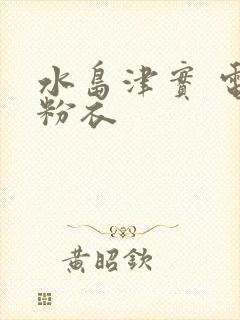 水島津實 電
粉衣
黃昭欽